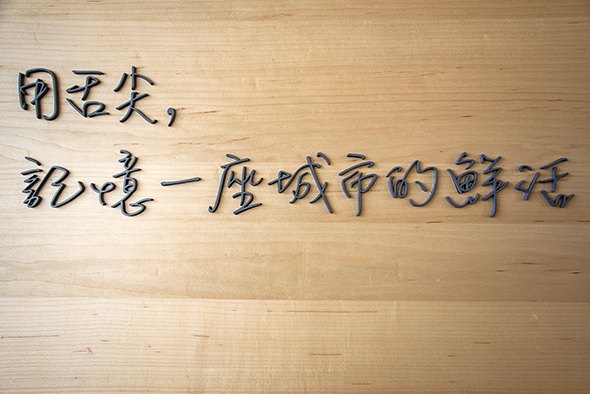 用舌尖，
記憶一座城市的鮮活